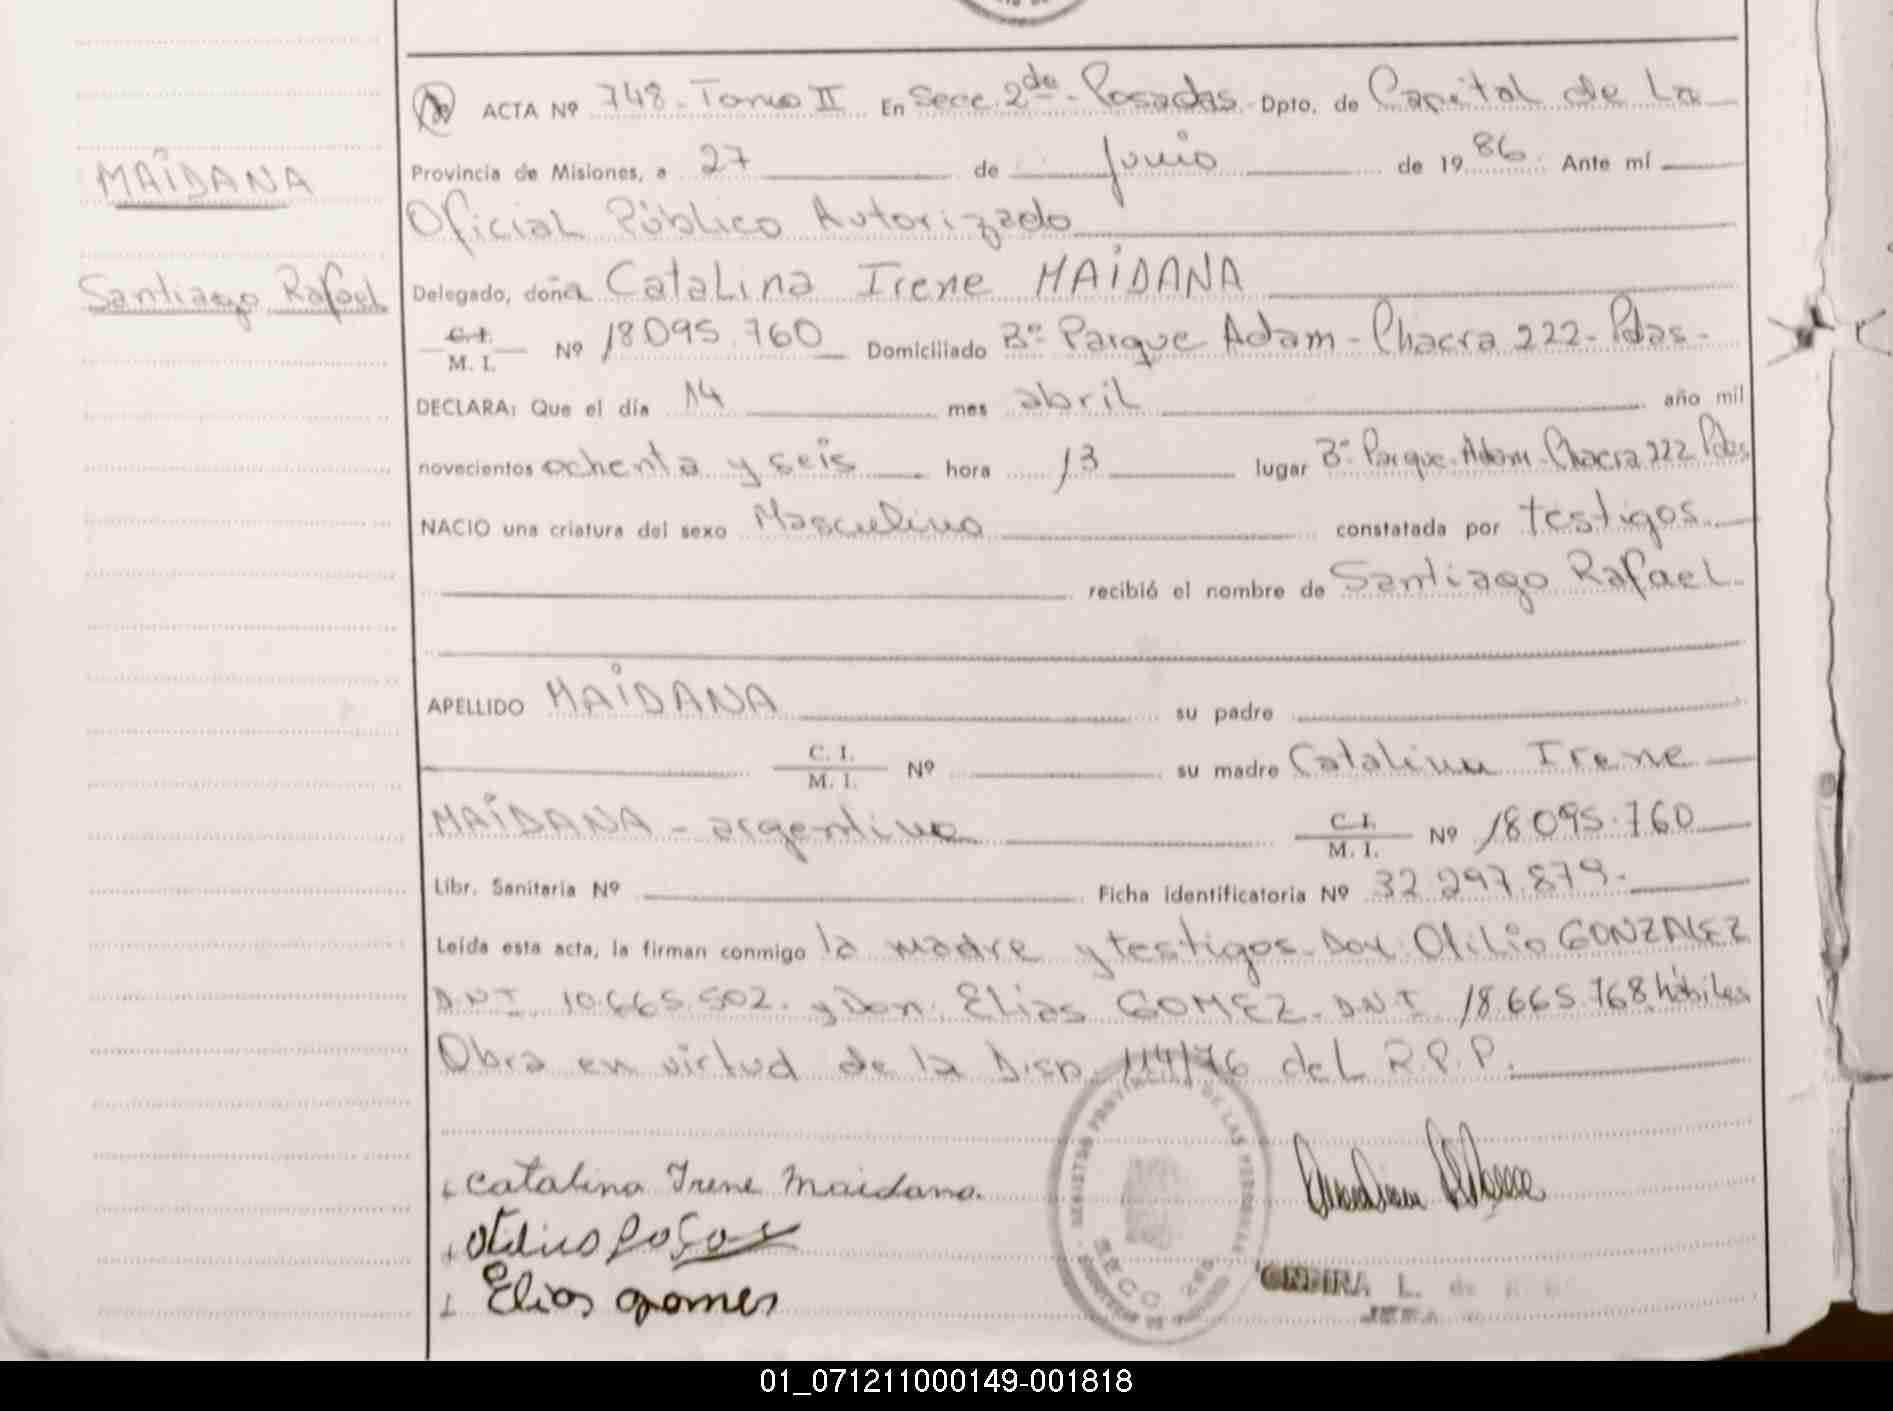 ACTA Nº 748- Tomo II En Secc. 2da- Posadas- Dpto. de Capital de La
Provincia de Misiones, a 27 de Junio de 1986. Ante mí
MAÍDANA
Oficial Público Autorizado
Santiago Rafael
Delegado, doña Catalina Irene MAÍDANA
C. I.
M. I. Nº 18095.760 Domiciliado Bº Parque Adam- Chacra 222- Pdas-
DECLARA: Que el día 14 mes abril año mil
novecientos ochenta y seis hora 13 lugar Bº Parque Adam- Chacra 222 Pdas
NACIO una criatura del sexo Masculino constatada por testigos
recibió el nombre de Santiago Rafael-
APELLIDO MAÍDANA su padre
C. I.
M. I. Nº su madre Catalina Irene
MAÍDANA - argentina C. I.
M. I. Nº 18095.760
Libr. Sanitaria Nº Ficha identificatoria Nº 32.297.879-
Leída esta acta, la firman conmigo la madre y testigos- Don. Otilio GONZALEZ
D.N.I. 10.665.502. y Don. Elias GOMEZ- D.N.I. 18.665.768 hábiles
Obra en virtud de la Disp. 114/76 del R.P.P.
Catalina Irene Maidana.
Elias gomes
REGISTRO PROVINCIAL DE LAS PERSONAS
SECC. 2da
L. de
JEFA
01_071211000149-001818